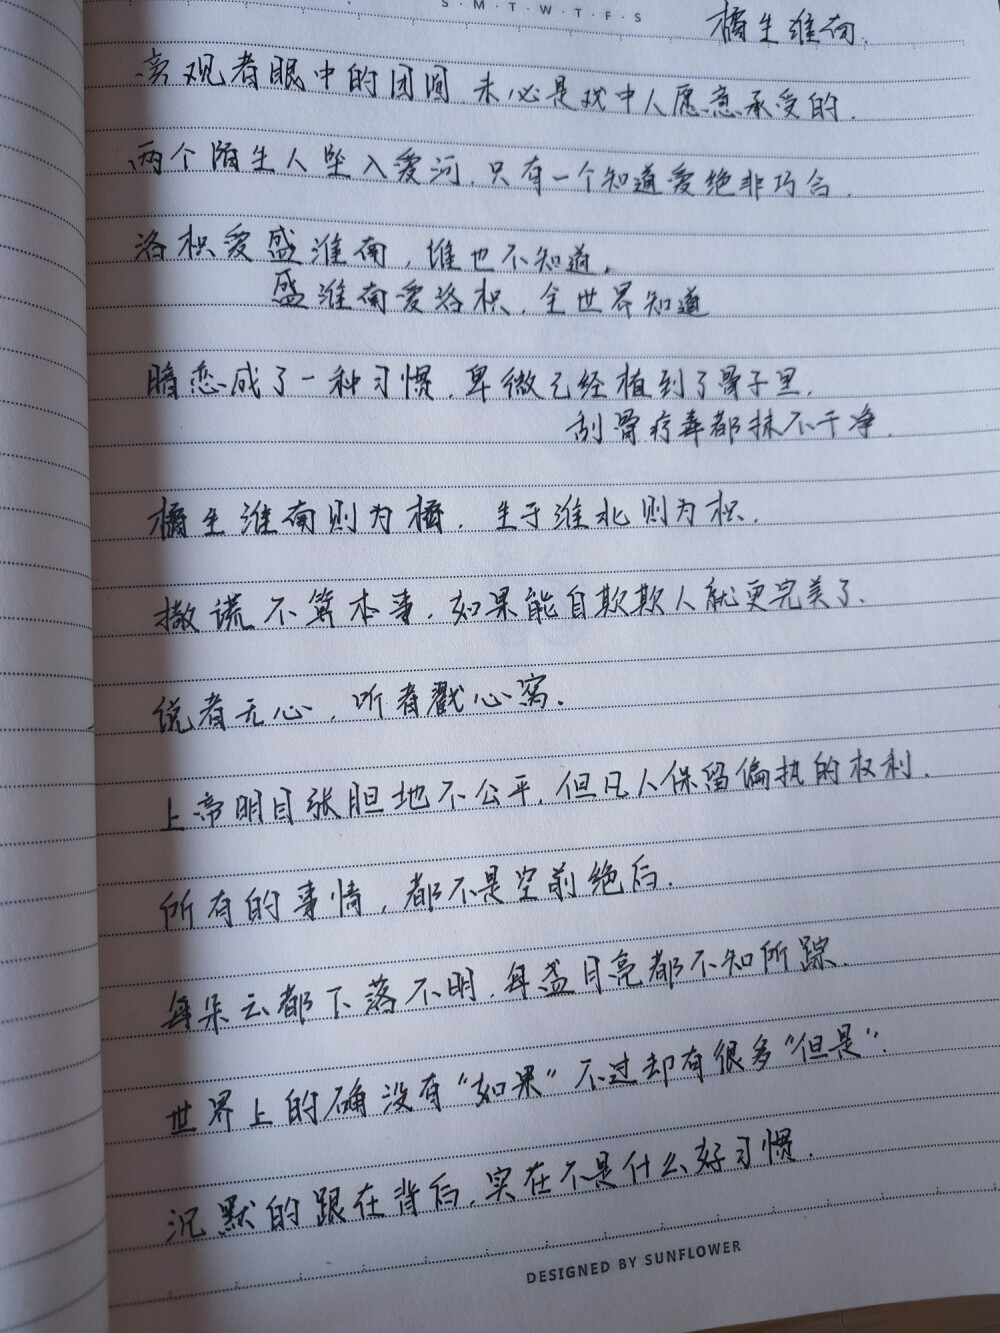 S·M·T·W·T·F·S
橘生淮南.
旁观者眼中的团圆.未必是戏中人愿意承受的.
两个陌生人坠入爱河.只有一个知道爱绝非巧合.
洛枳爱盛淮南,谁也不知道.
盛淮南爱洛枳.全世界知道
暗恋成了一种习惯.卑微已经植到了骨子里.
刮骨疗毒都抹不干净.
橘生淮南则为橘.生于淮北则为枳.
撒谎不算本事.如果能自欺欺人就更完美了.
说者无心,听者戳心窝.
上帝明目张胆地不公平.但凡人保留偏执的权利.
所有的事情,都不是空前绝后.
每朵云都下落不明.每盏月亮都不知所踪.
世界上的确没有“如果”不过却有很多“但是”.
沉默的跟在背后.实在不是什么好习惯.
DESIGNED BY SUNFLOWER